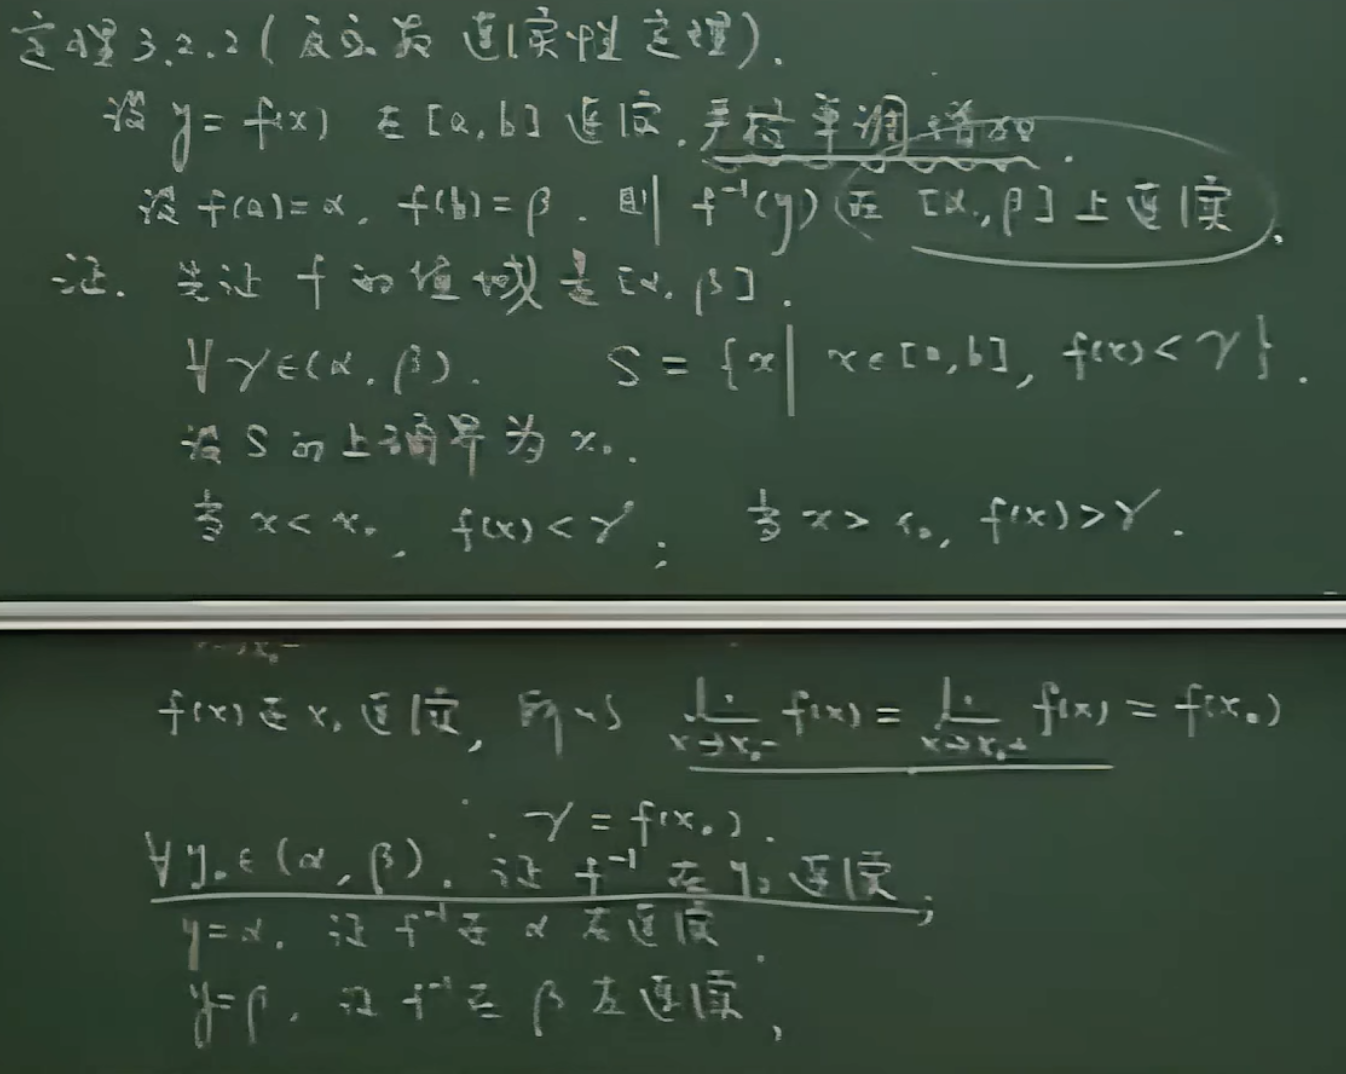 定理3.2.2(反函数连续性定理).
设 y=f(x) 在[a,b]连续,严格单调增加.
设 f(a)=α, f(b)=β. 则 f⁻¹(y) 在 [α,β]上连续.
证. 先证 f 的值域是[α,β].
∀γ∈(α,β). S={x| x∈[a,b], f(x)<γ}.
设 S 的上确界为 x₀.
当 x<x₀, f(x)<γ; 当 x>x₀, f(x)>γ.
x→x₀-
f(x)在x₀连续, 所以 lim_{x→x₀-} f(x) = lim_{x→x₀+} f(x) = f(x₀)
γ=f(x₀).
∀y₀∈(α,β). 证 f⁻¹ 在 y₀ 连续;
y=α. 证 f⁻¹在 α 右连续.
y=β. 证 f⁻¹在 β 左连续,